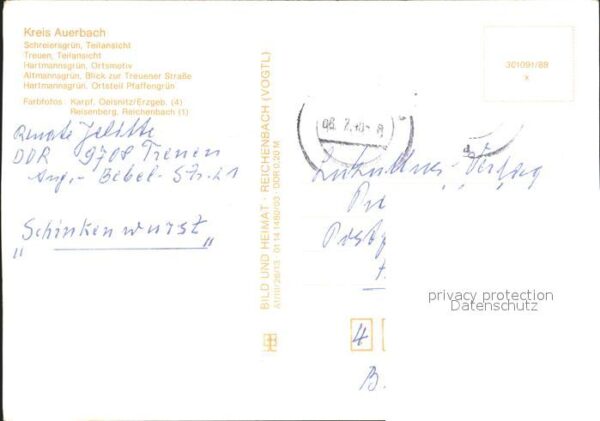 Kreis Auerbach
Schreiersgrün, Teilansicht
Treuen, Teilansicht
Hartmannsgrün, Ortsmotiv
Altmannsgrün, Blick zur Treuener Straße
Hartmannsgrün, Ortsteil Pfaffengrün
Farbfotos: Karpf, Oelsnitz/Erzgeb. (4)
Reisenberg, Reichenbach (1)
Renate
DDR 9708 Treuen
Aug.-Bebel-Str. 21
"Schinkenwurst"
BILD UND HEIMAT · REICHENBACH (VOGTL)
A1/III/26/13 01 14 1460/03 · DDR 0,20 M
301091/88
x
Verlag
Postf
4
B.
privacy protection
Datenschutz